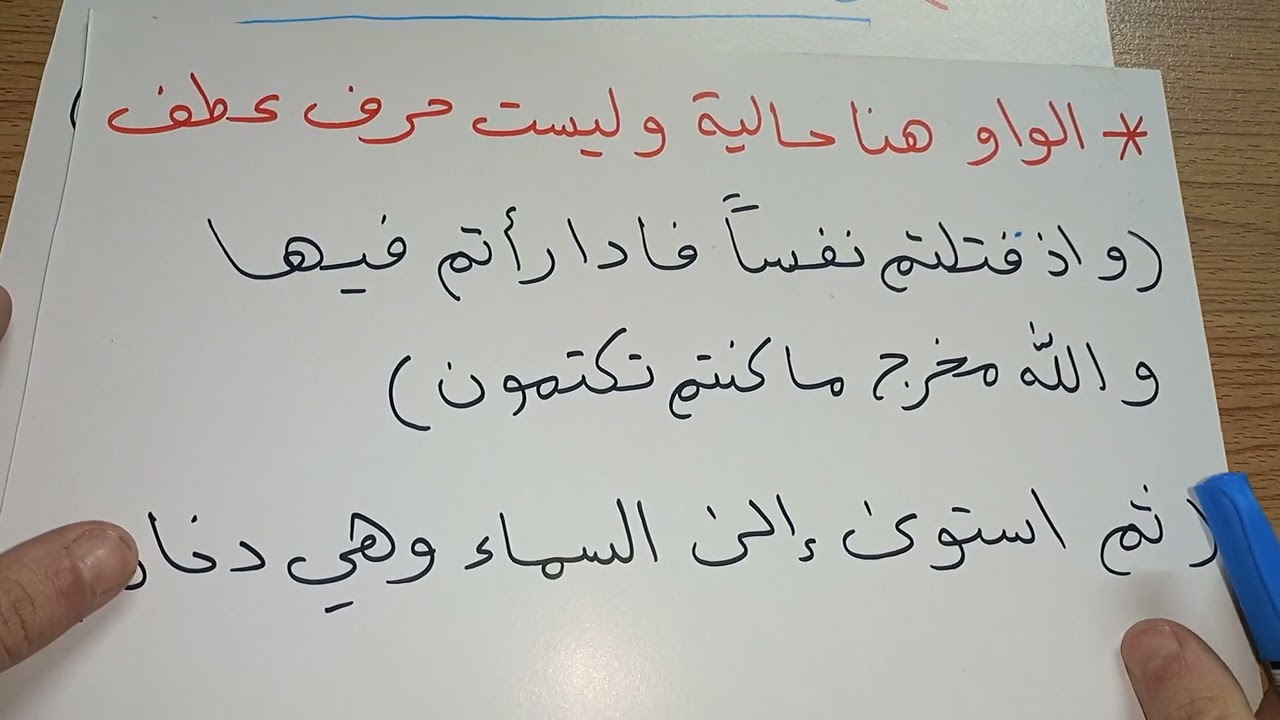 * الواو هنا حالية وليست حرف عطف
(واذ قتلتم نفساً فادارأتم فيها
والله مخرج ما كنتم تكتمون)
(ثم استوى إلى السماء وهي